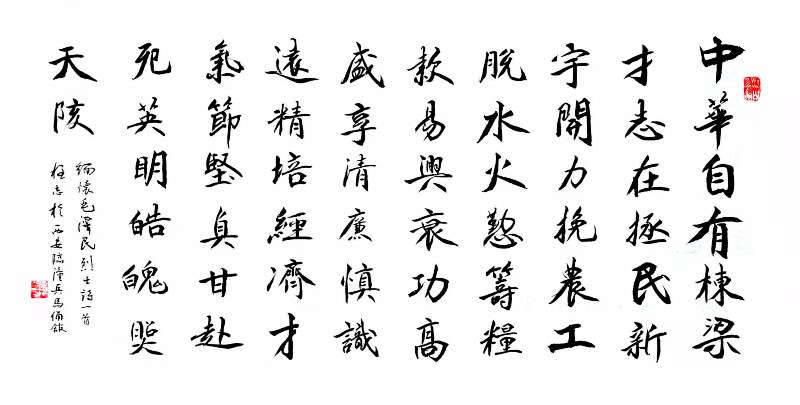 中華自有棟梁
才志在拯民新
宇開力挽農工
脫水火懃籌糧
款易興衰功高
盛享清廉慎識
遠精培經濟才
氣節堅真甘赴
死英明皓魄熒
天陔
緬懷毛澤民烈士詩一首
程志於西安臨潼兵馬俑館